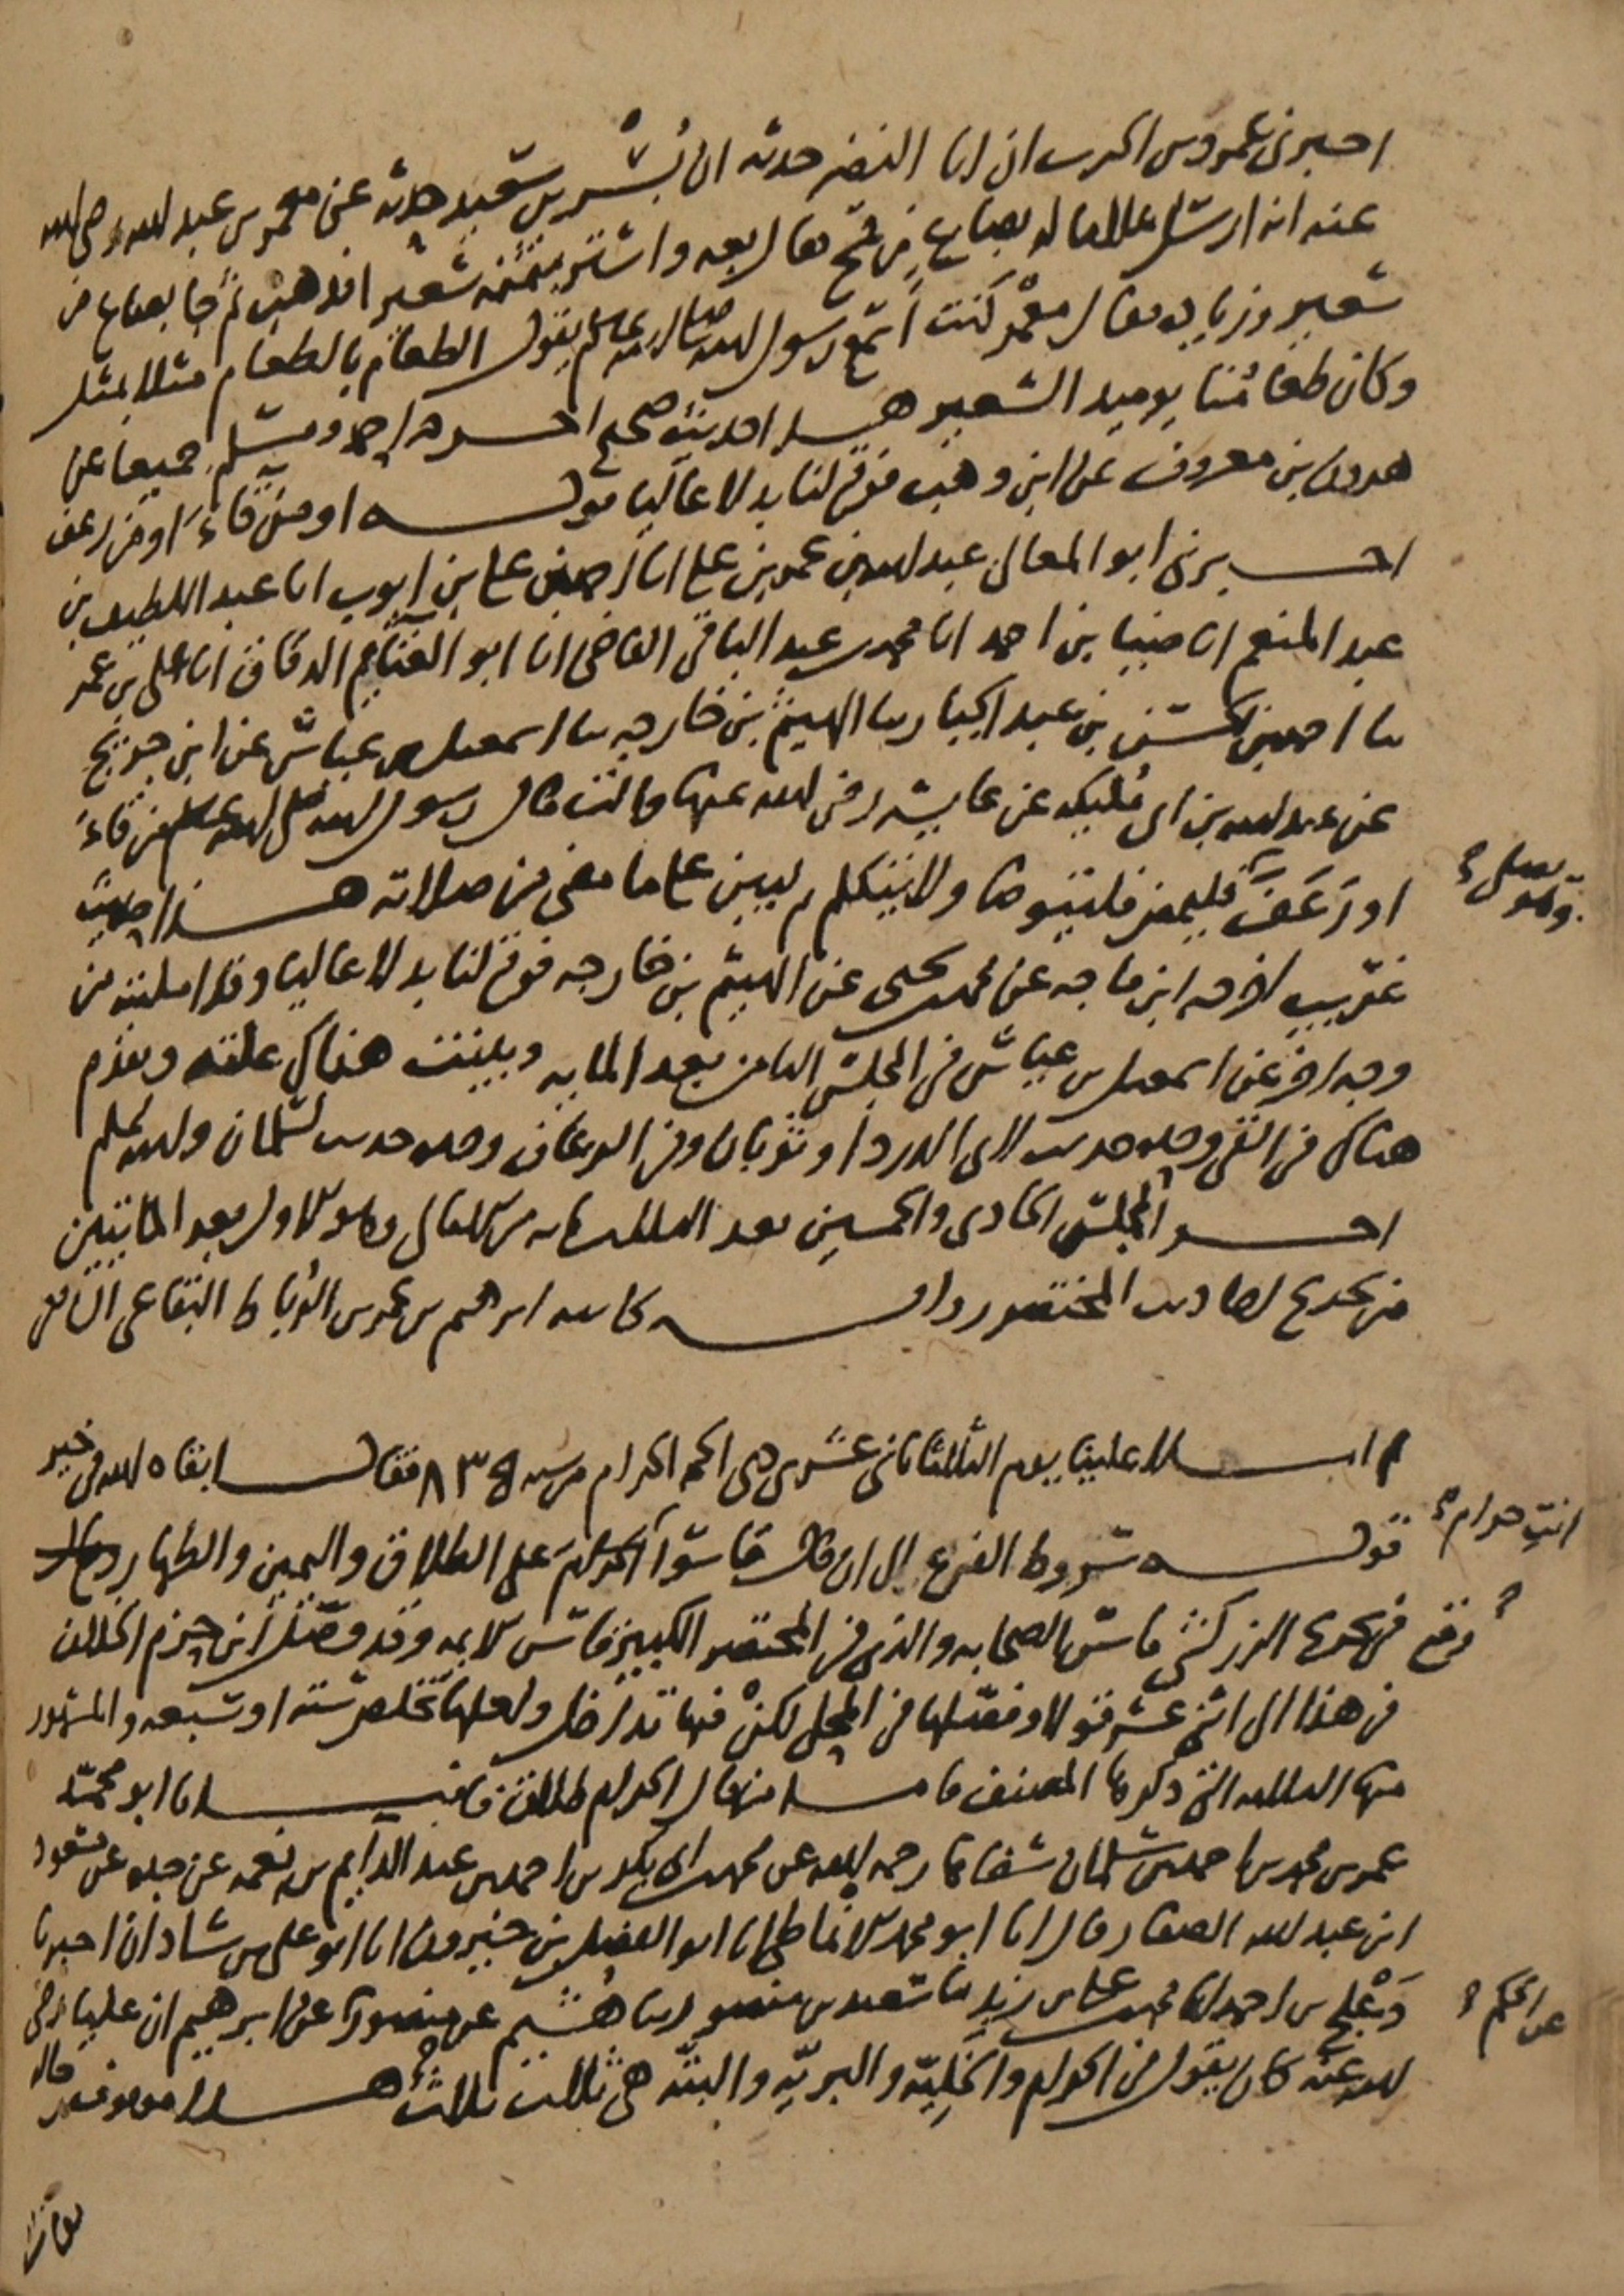 اخبرنى عمرو بن الحرث ان ابا النضر حدثه ان بُسْر بن سعيد حدثه عن معمر بن عبد الله رضى الله
عنه انه ارسل غلاما له بصاع من قمح فقال بعه واشتر بثمنه شعيرا فذهب ثم جا بصاع من
شعير وزياده فقال معمر كنت اسمع رسول الله صلى الله عليه وسلم يقول الطعام بالطعام مثلا بمثل
وكان طعامنا يوميذ الشعير هذا حديث صحيح اخرجه احمد ومسلم جميعا عن
هرون بن معروف عن ابن وهب فوقع لنا بدلا عاليا قوله او من قاء او من رعف
اخبرنى ابو المعالى عبد الله بن عمر بن على انا احمد بن على بن ايوب انا عبد اللطيف بن
عبد المنعم انا ضيا بن احمد انا محمد بن عبد الباقى القاضى انا ابو الغنايم الدقاق انا على بن عمر
ثنا احمد بن الحسن بن عبد الجبار ثنا الهيثم بن خارجه ثنا اسمعيل بن عياش عن ابن جريج
عن عبد الله بن ابى مُليكه عن عايشه رضى الله عنها قالت قال رسول الله صلى الله عليه وسلم من قاءَ
او رَعَفَ فليحدث فليتوضا ولا يتكلم ثم ليبن على ما مضى من صلاته هذا حديث
غريب اخرجه ابن ماجه عن محمد بن يحيى عن الهيثم بن خارجه فوقع لنا بدلا عاليا وقد امليته من
وجه اخر عن اسمعيل بن عياش فى المجلس الثامن بعد المايه وبينت هناك علته وتقدم
هناك فى القى وحده حديث لابى الدردا وثوبان وفى الرعاف وحده حديث لسلمان والله اعلم
اخر المجلس الحادى والخمسين بعد الثلثمايه من الامالى وهو الاول بعد المايتين
من تخريج احاديث المختصر رواية كاتبه ابرهيم بن عمر بن الرُباط البقاعى الشافعى
ثم املا علينا يوم الثلثا ثانى عشرى ذى الحجه الحرام من سنه ٨٣٥ فقال ابقاه الله فى خير
قوله شروط الفرع الى ان قال قاسوا الحرام على الطلاق واليمين والظهار
انتِ حرام
وقع فى تخريج الزركشى قاس الصحابه والذى فى المختصر الكبير قاس الايمه وقد وصل ابن حزم الخلاف
فى هذا الى اثنى عشر قولا وفصلها فى المحلى لكن فيها تداخل ولعلها تخلص سته او سبعه والمشهور
منها الثلثه التى ذكرها المصنف فاما من قال الحرام طلاق فانبانا ابو محمد
عمر بن محمد بن احمد بن سلمان شفاها رحمه الله عن محمد بن ابى بكر بن احمد بن عبد الدايم بن نعمه عن جده عن مسعود
ابن عبد الله الصفار قال انا ابو محمد الانماطى انا ابو الفضل بن خيرون انا ابو على بن شاذان اخبرنا
دَعْلج بن احمد انا محمد بن على بن زيد ثنا سعيد بن منصور ثنا هُشيم عن منصور عن ابرهيم ان عليا رضى
عن الحكم
الله عنه كان يقول فى الحرام والخليّه والبريّه والبتّه هى ثلث ثلث هذا موقوف رجاله
ثقات